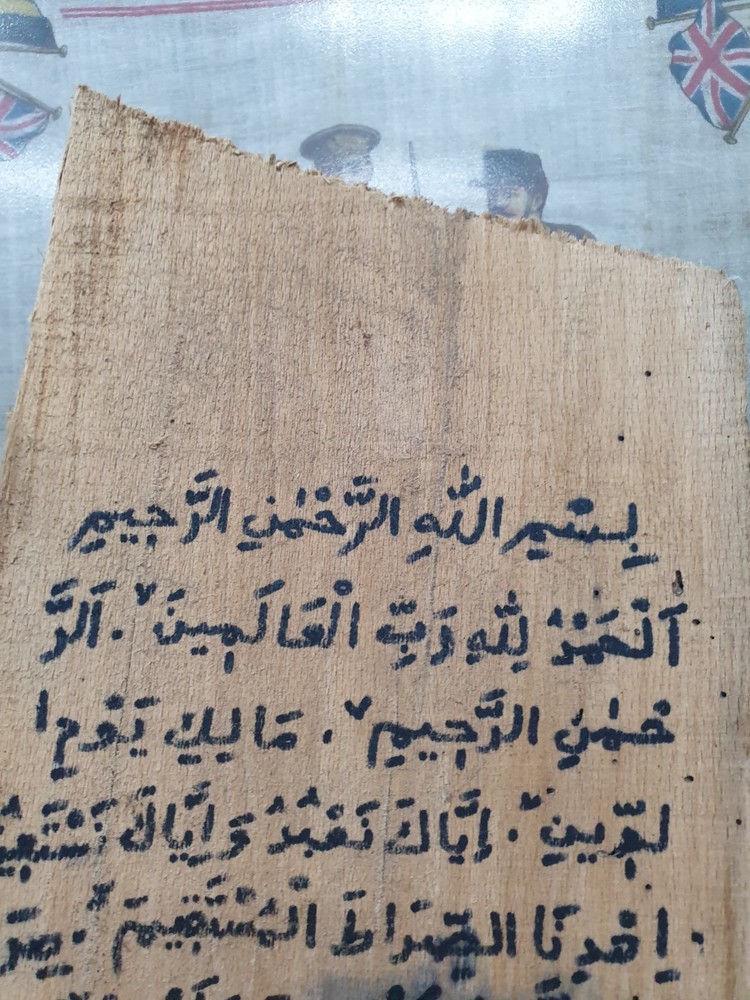 بِسْمِ اللّٰهِ الرَّحْمٰنِ الرَّحِيمِ
اَلْحَمْدُ لِلّٰهِ رَبِّ الْعَالَمِينَ ٧. اَلرَّ
حْمٰنِ الرَّحِيمِ ٧. مَالِكِ يَوْمِ ا
لدِّينِ ٧. اِيَّاكَ نَعْبُدُ وَاِيَّاكَ نَسْتَعِينُ
.اِهْدِنَا الصِّرَاطَ الْمُسْتَقِيمَ ٧.